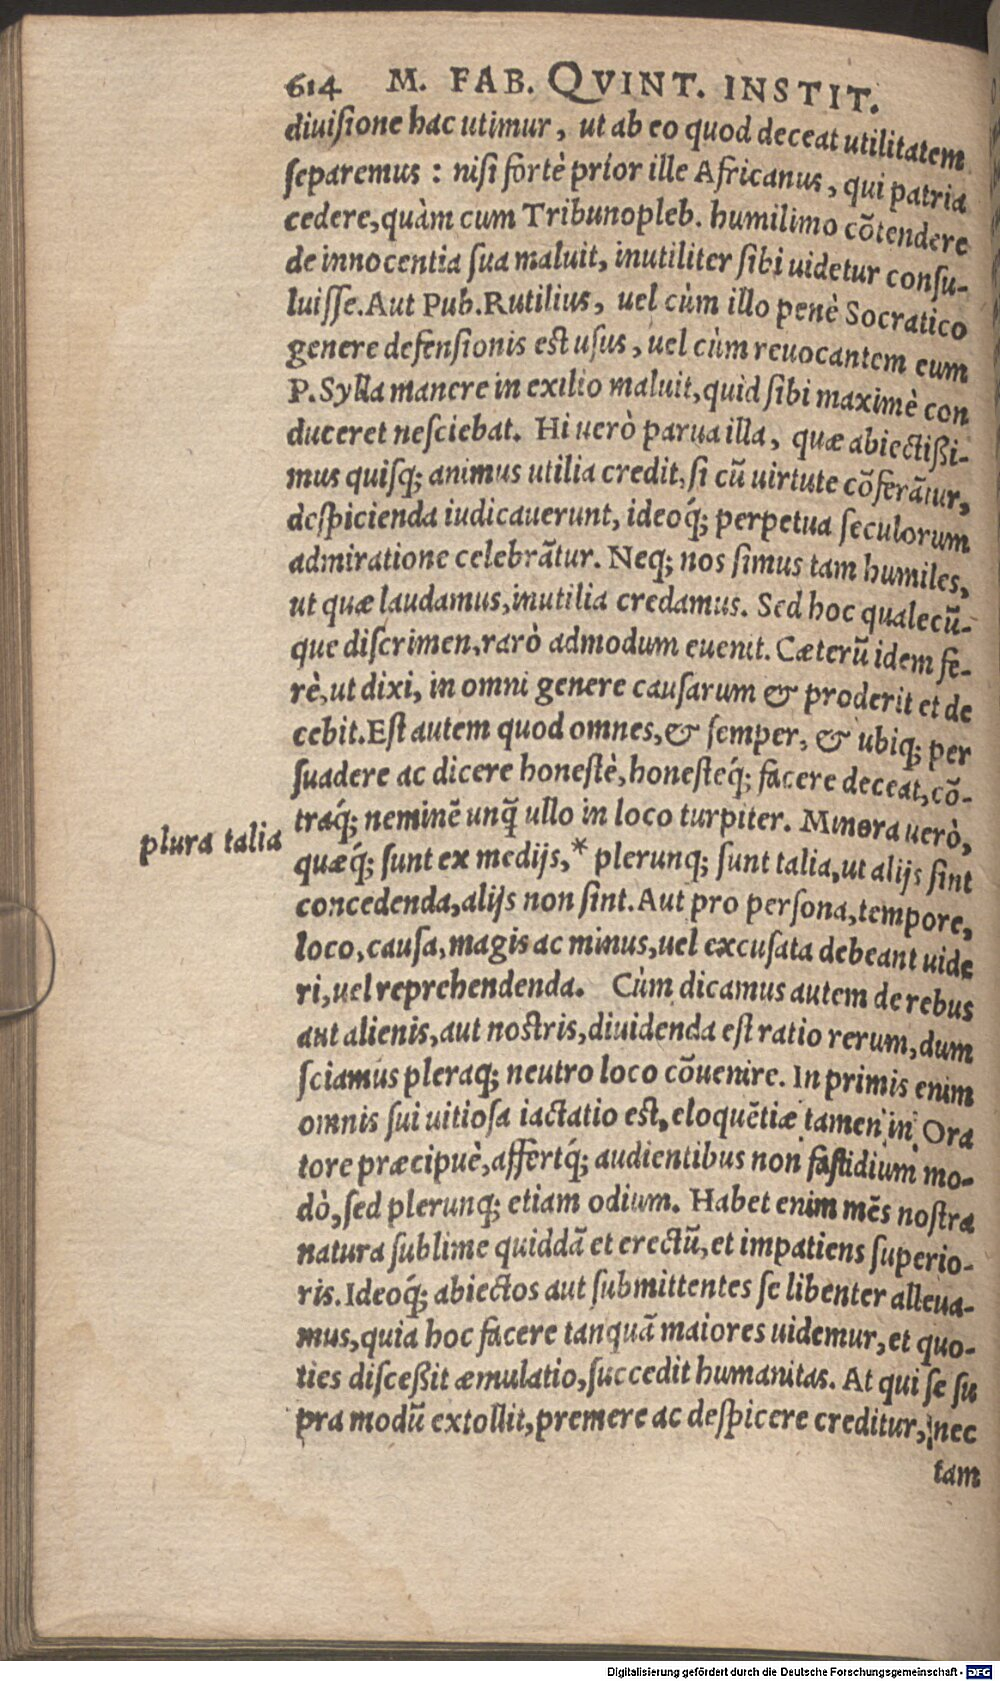 614 M. FAB. QVINT. INSTIT.
diuiſione hac utimur, ut ab eo quod deceat utilitatem
ſeparemus: niſi fortè prior ille Africanus, qui patria
cedere, quàm cum Tribunopleb. humilimo cõtendere
de innocentia ſua maluit, inutiliter ſibi uidetur conſu-
luiſſe. Aut Pub. Rutilius, uel cùm illo penè Socratico
genere defenſionis eſt uſus, uel cùm reuocantem eum
P. Sylla manere in exilio maluit, quid ſibi maximè con
duceret neſciebat. Hi uerò parua illa, quæ abiectißi-
mus quiſq; animus utilia credit, ſi cũ uirtute cõferãtur,
deſpicienda iudicauerunt, ideoq́; perpetua ſeculorum
admiratione celebrãtur. Neq; nos ſimus tam humiles,
ut quæ laudamus, inutilia credamus. Sed hoc qualecũ-
que diſcrimen, rarò admodum euenit. Cæterũ idem fe-
rè, ut dixi, in omni genere cauſarum & proderit et de
cebit. Eſt autem quod omnes, & ſemper, & ubiq; per
ſuadere ac dicere honeſtè, honeſteq́; facere deceat, cõ-
traq́; neminẽ unq̃ ullo in loco turpiter. Minora uerò,
plura talia
quæq́; ſunt ex medijs, * plerunq; ſunt talia, ut alijs ſint
concedenda, alijs non ſint. Aut pro perſona, tempore,
loco, cauſa, magis ac minus, uel excuſata debeant uide
ri, uel reprehendenda. Cùm dicamus autem de rebus
aut alienis, aut noſtris, diuidenda eſt ratio rerum, dum
ſciamus pleraq; neutro loco cõuenire. In primis enim
omnis ſui uitioſa iactatio eſt, eloquẽtiæ tamen in Ora
tore præcipuè, affertq́; audientibus non faſtidium mo-
dò, ſed plerunq; etiam odium. Habet enim mẽs noſtra
natura ſublime quiddã et erectũ, et impatiens ſuperio-
ris. Ideoq́; abiectos aut ſubmittentes ſe libenter alleua-
mus, quia hoc facere tanquã maiores uidemur, et quo-
ties diſceßit æmulatio, ſuccedit humanitas. At qui ſe ſu
pra modũ extollit, premere ac deſpicere creditur, nec
tam
Digitalisierung gefördert durch die Deutsche Forschungsgemeinschaft - DFG